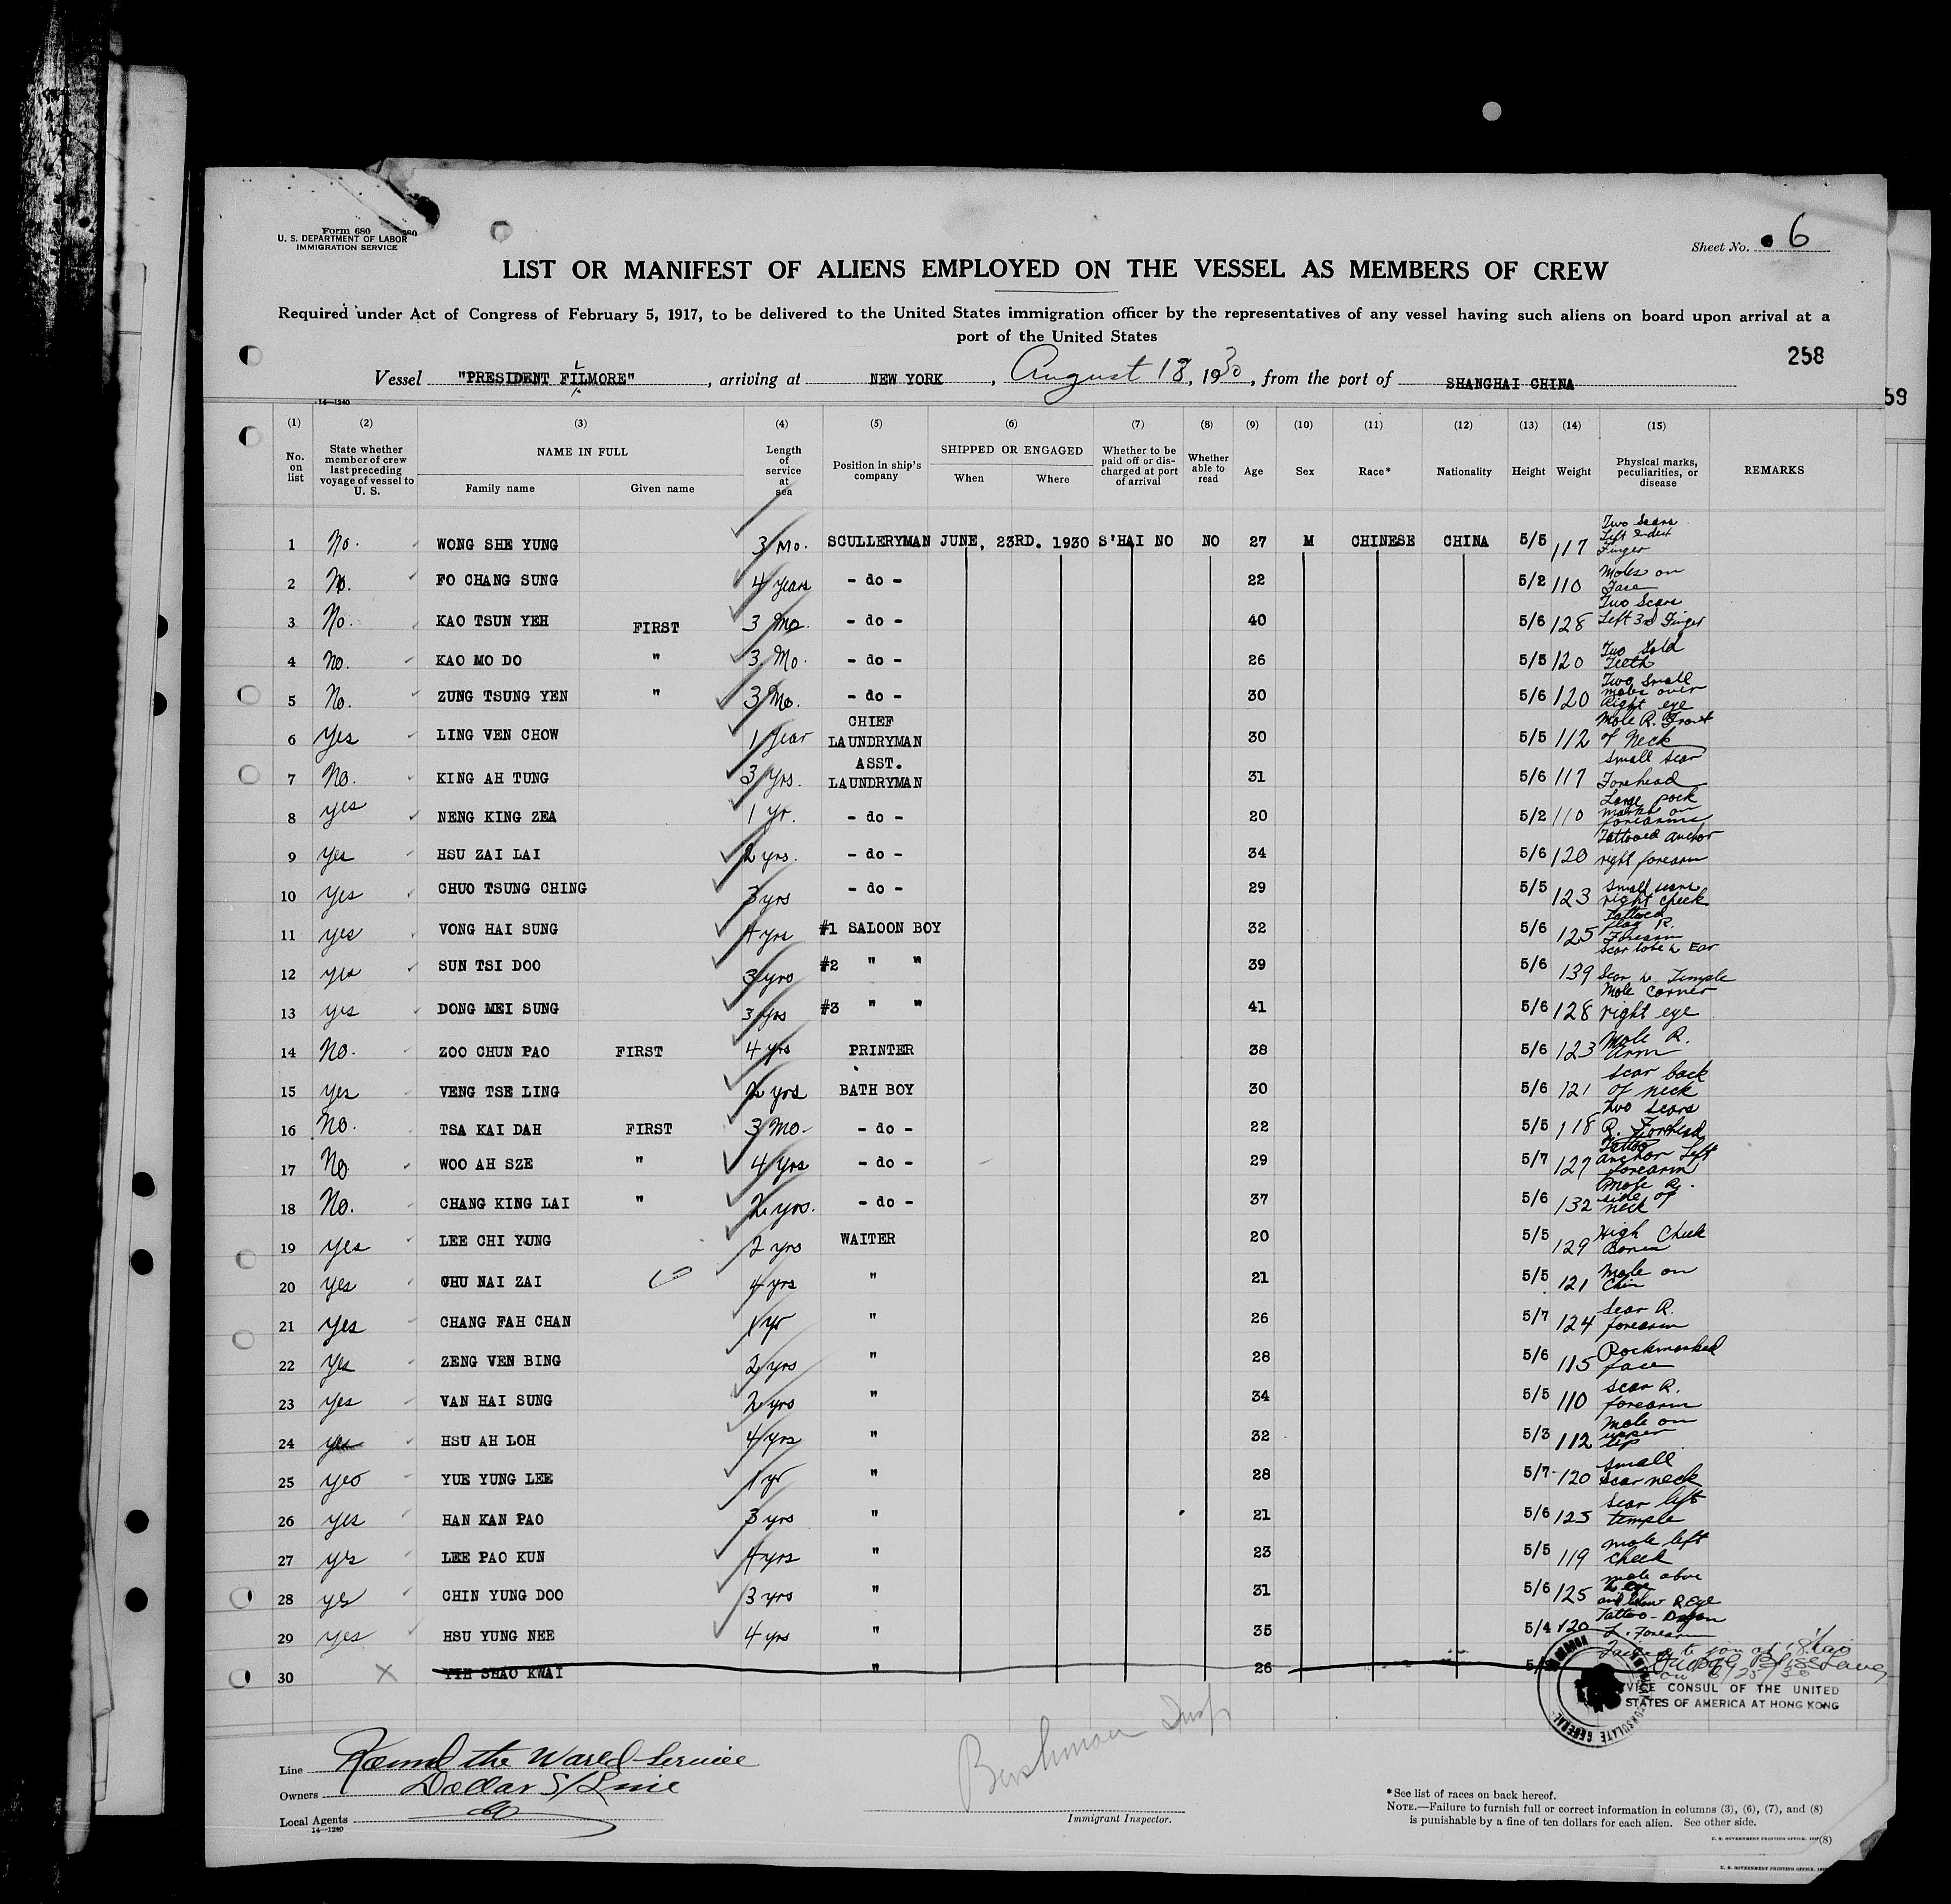 Form 680
U. S. DEPARTMENT OF LABOR
IMMIGRATION SERVICE
Sheet No. 6
LIST OR MANIFEST OF ALIENS EMPLOYED ON THE VESSEL AS MEMBERS OF CREW
Required under Act of Congress of February 5, 1917, to be delivered to the United States immigration officer by the representatives of any vessel having such aliens on board upon arrival at a
port of the United States
258
Vessel "PRESIDENT FILMORE", arriving at NEW YORK, August 18, 1930, from the port of SHANGHAI CHINA
59
14—1240
(1) (2) (3) (4) (5) (6) (7) (8) (9) (10) (11) (12) (13) (14) (15)
No. on list State whether member of crew last preceding voyage of vessel to U. S. NAME IN FULL Family name Given name Length of service at sea Position in ship's company SHIPPED OR ENGAGED When Where Whether to be paid off or discharged at port of arrival Whether able to read Age Sex Race* Nationality Height Weight Physical marks, peculiarities, or disease REMARKS
1 No. WONG SHE YUNG 3 Mo. SCULLERYMAN JUNE, 23RD. 1930 S'HAI NO NO 27 M CHINESE CHINA 5/5 117 Two Scars Left Index Finger
2 No. FO CHANG SUNG 4 years - do - 22 5/2 110 Moles on Face
3 No. KAO TSUN YEH FIRST 3 Mo. - do - 40 5/6 128 Two Scars Left 3rd Finger
4 No. KAO MO DO " 3 Mo. - do - 26 5/5 120 Two Gold Teeth
5 No. ZUNG TSUNG YEN " 3 Mo. - do - 30 5/6 120 Two Small moles over Right eye
6 Yes LING VEN CHOW 1 Year CHIEF LAUNDRYMAN 30 5/5 112 Mole R. Front of Neck
7 No. KING AH TUNG 3 Yrs. ASST. LAUNDRYMAN 31 5/6 117 Small scar Forehead
8 yes NENG KING ZEA 1 yr. - do - 20 5/2 110 Large pock marks on forearms
9 yes HSU ZAI LAI 2 yrs. - do - 34 5/6 120 Tattooed anchor right forearm
10 yes CHUO TSUNG CHING 3 yrs - do - 29 5/5 123 Small scars right cheek
11 yes VONG HAI SUNG 4 yrs #1 SALOON BOY 32 5/6 125 Tattooed flag R. Forearm
12 yes SUN TSI DOO 3 yrs #2 " " 39 5/6 139 Scar lobe L Ear Scar L. Temple
13 yes DONG MEI SUNG 3 yrs #3 " " 41 5/6 128 Mole Corner right eye
14 No. ZOO CHUN PAO FIRST 4 yrs PRINTER 38 5/6 123 Mole R. Arm
15 Yes VENG TSE LING 2 yrs BATH BOY 30 5/6 121 Scar back of neck
16 No. TSA KAI DAH FIRST 3 Mo. - do - 22 5/5 118 Two scars R. Forehead
17 No WOO AH SZE " 4 Yrs - do - 29 5/7 127 Tattoo anchor Left forearm
18 No. CHANG KING LAI " 2 yrs. - do - 37 5/6 132 Mole R. side of neck
19 yes LEE CHI YUNG 2 yrs WAITER 20 5/5 129 High Cheek Bones
20 Yes CHU NAI ZAI 4 yrs " 21 5/5 121 Mole on Chin
21 Yes CHANG FAH CHAN 1 yr " 26 5/7 124 Scar R. forearm
22 Yes ZENG VEN BING 2 yrs " 28 5/6 115 Pockmarked face
23 yes VAN HAI SUNG 2 yrs " 34 5/5 110 Scar R. forearm
24 yes HSU AH LOH 4 yrs " 32 5/3 112 Mole on upper lip
25 yes YUE YUNG LEE 1 yr " 28 5/7 120 Small Scar neck
26 yes HAN KAN PAO 3 yrs " 21 5/6 125 Scar left temple
27 yes LEE PAO KUN 4 yrs " 23 5/5 119 mole left cheek
28 yes CHIN YUNG DOO 3 yrs " 31 5/6 125 mole above L eye and below R Eye
29 yes HSU YUNG NEE 4 yrs " 35 5/4 120 Tattoo - Dragon L. Forearm
30 X YIH SHAO KWAI " 26 Failed to join at S'hai on 6/25/30
VICE CONSUL OF THE UNITED
STATES OF AMERICA AT HONG KONG
AMERICAN CONSULATE GENERAL
Line Round the World Service
Owners Dollar S/S Line
Local Agents do
14—1240
Immigrant Inspector.
*See list of races on back hereof.
NOTE.—Failure to furnish full or correct information in columns (3), (6), (7), and (8)
is punishable by a fine of ten dollars for each alien. See other side.
U. S. GOVERNMENT PRINTING OFFICE (8)
U. S. GOVERNMENT PRINTING OFFICE